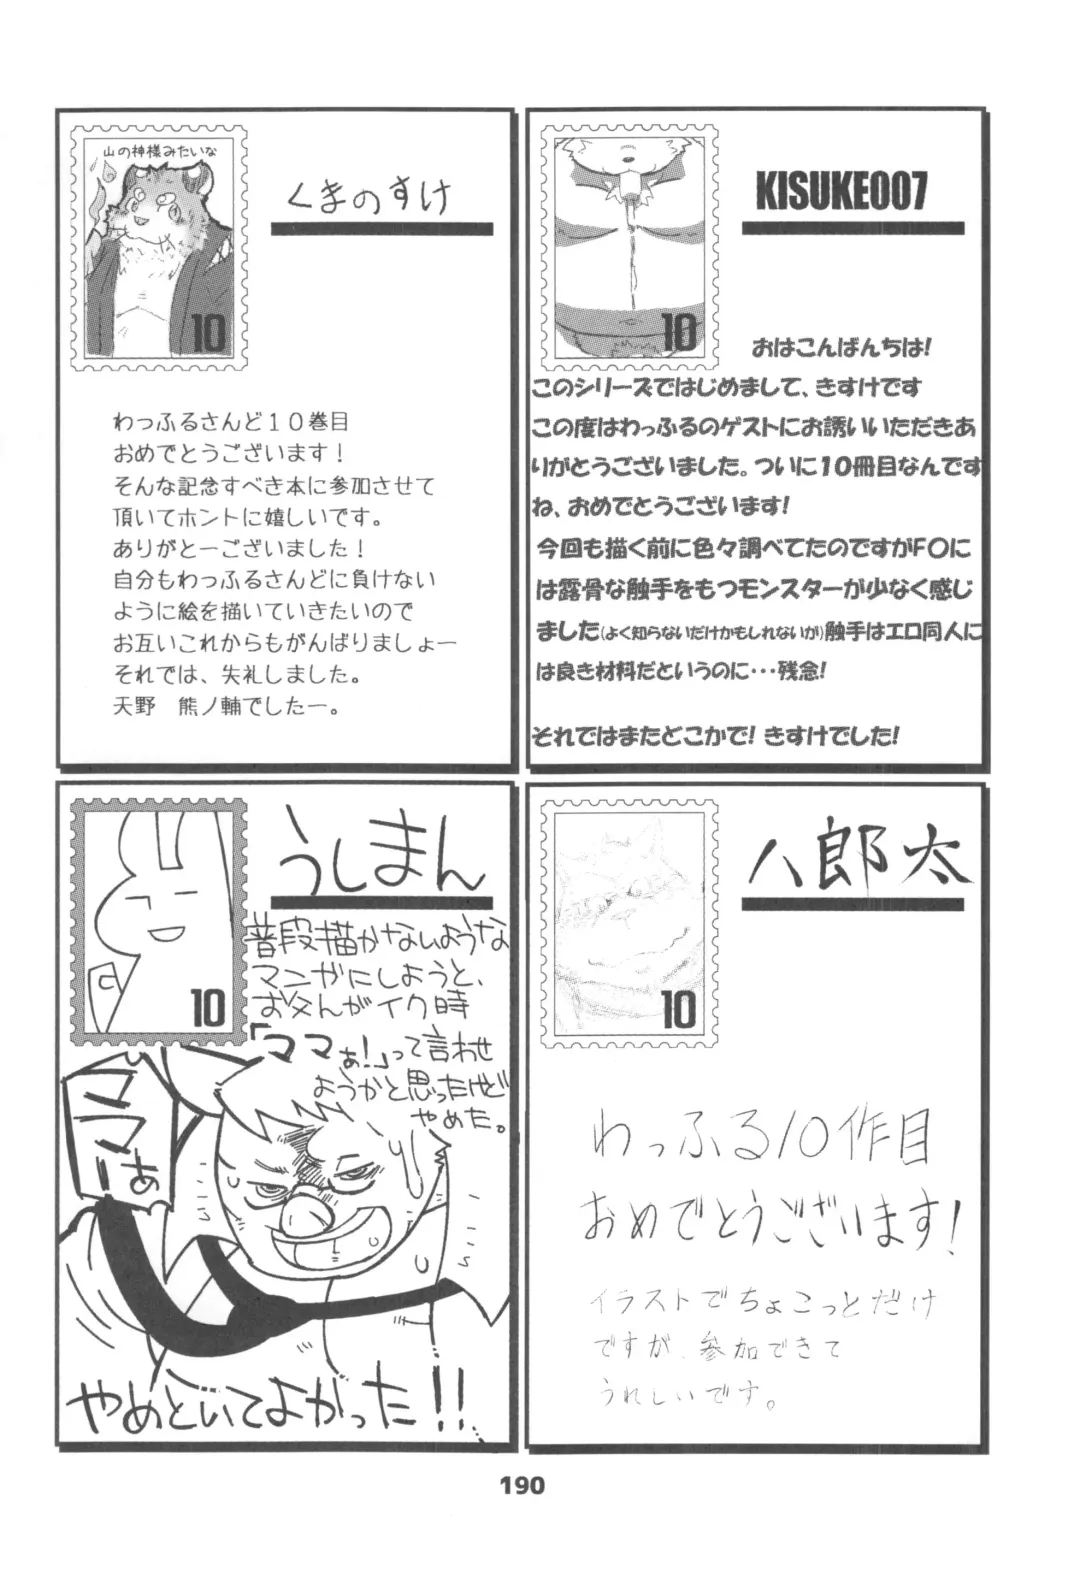 山の神様みたいな
くまのすけ
10
わっふるさんど１０巻目
おめでとうございます！
そんな記念すべき本に参加させて
頂いてホントに嬉しいです。
ありがとーございました！
自分もわっふるさんどに負けない
ように絵を描いていきたいので
お互いこれからもがんばりましょー
それでは、失礼しました。
天野　熊ノ輔でしたー。
KISUKE007
10
おはこんばんちは!
このシリーズではじめまして、きすけです
この度はわっふるのゲストにお誘いいただきあ
りがとうございました。ついに10冊目なんです
ね、おめでとうございます!
今回も描く前に色々調べてたのですがFOに
は露骨な触手をもつモンスターが少なく感じ
ました(よく知らないだけかもしれないが)触手はエロ同人に
は良き材料だというのに・・・残念!
それではまたどこかで! きすけでした!
うしまん
10
普段描かないような
マンガにしようと、
お父んがイク時
「ママぁ!」って言わせ
ようかと思ったけど
やめた。
ママーぁ
やめといてよかった!!
八郎太
10
わっふる10作目
おめでとうございます!
イラストでちょこっとだけ
ですが、参加できて
うれしいです。
190